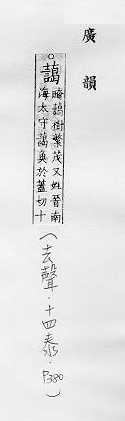 廣韻
○藹晻藹樹繁茂又姓晉南
海太守藹奐於蓋切十
(去聲·十四泰·P380)